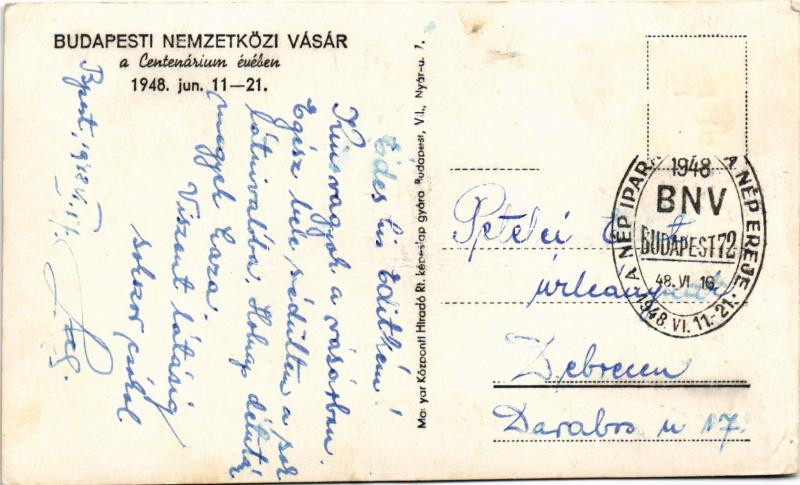 BUDAPESTI NEMZETKÖZI VÁSÁR
a Centenárium évében
1948. jun. 11—21.
Bpest, 1948
Édes kis Editkém!
Kinn vagyok a vásárban.
Egész bele szédültem a sok
látnivalóba. Holnap délután
megyek haza.
Viszont látásig
sokszor csókol
Magyar Központi Híradó Rt. képeslap gyára Budapest, VII., Nyár-u. 7.
A NÉP IPARA A NÉP EREJE.
1948
BNV
BUDAPEST 72
48. VI. 16
1948. VI. 11.-21.
Petelei
úrleánynak
Debrecen
Darabos u 17.